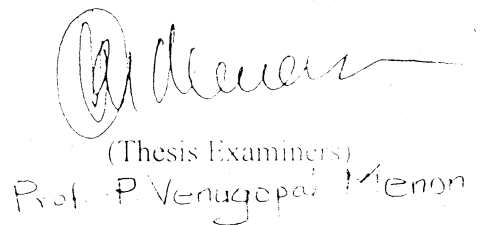 Menon
(Thesis Examiners)
Prof. P. Venugopal Menon